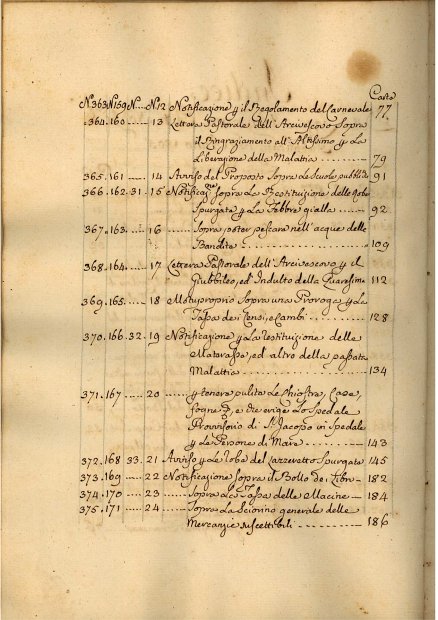 Carte
N.363 N.159 N.... N.12 Notificazione p il Regolamento del Carnevale 77.
.364.160..... 13 Lettera Pastorale dell' Arcivescovo Sopra
il Ringraziamento all' Altissimo p La
Liberazione della Malattia.......... 79
365.161..... 14 Avviso del Proposto Sopra Le Scuole pubbliche 91
366.162.31.15 Notificaz.ne Sopra La Restituzione delle Robe
Spurgate p La Febbre gialla....... 92
367.163..... 16 ..... Sopra poter pescare nell' acque delle
Bandite................. 109
368.164..... 17 Lettera Pastorale dell' Arcivescovo p il
Giubbileo, ed' Indulto della Quaresima 112
369.165..... 18 Motuproprio Sopra una Proroga p La
Tassa dei Censi, e Cambi......... 128
370.166.32.19 Notificazione p La restituzione delle
Materasse, ed altro della passata
Malattia................ 134
371.167..... 20 ..... p tenere pulite Le Chiostre, Case,
fogne &, e che erige Lo Spedale
Provvisorio di S. Jacopo in Spedale
p Le Persone di Mare........ 143
372.168 33.21 Avviso p Le robe del Lazzeretto Spurgate 145
373.169.... 22 Notificazione sopra il Bollo dei Libri.. 182
374.170.... 23 ..... Sopra La Tassa delle Macine.. 184
375.171.... 24 ..... Sopra La Sciorino generale delle
Mercanzie suscettibili....... 186